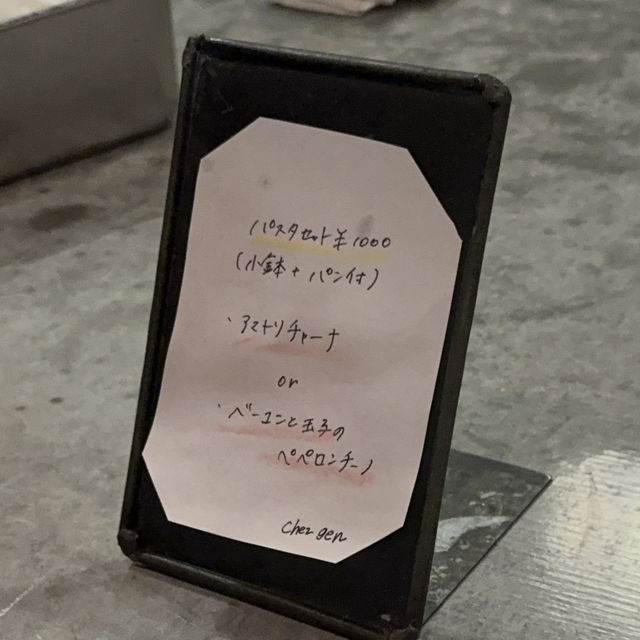 パスタセット¥1000
(小鉢+パン付)
・アマトリチャーナ
or
・ベーコンと玉子の
ペペロンチーノ
Chez gen